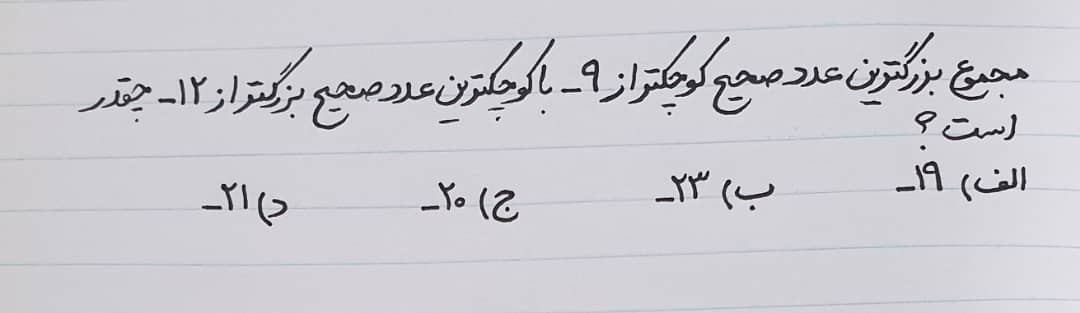 مجموع بزرگترین عدد صحیح کوچکتر از ۹- با کوچکترین عدد صحیح بزرگتر از ۱۲- چقدر
است ؟
الف) ۱۹- ب) ۲۳- ج) ۲۰- د) ۲۱-